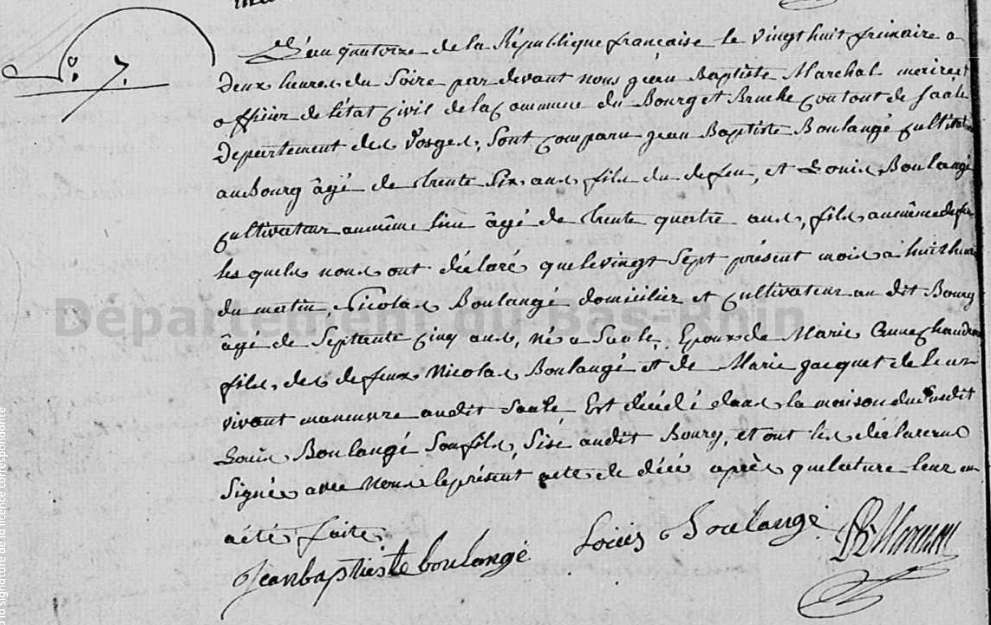 N°. 7.
L'an quatorze de la République francaise le vingt huit frimaire a
Deux heures du Soire par devant nous jean Baptiste Marchal maire et
officier de l'état Civil de la Commune du Bourg et Bruche Canton de Saale
Departement des Vosges, Sont Comparu jean Baptiste Boulangé Cultivateur
au Bourg âgé de trente Six ans fils du defeu, et Louis Boulangé
Cultivateur au même lieu âgé de trente quatre ans, fils au même defeu
les quels nous ont déclaré que le vingt Sept présent mois a huit heures
du matin, Nicolas Boulangé domicilier et Cultivateur au dit Bourg
âgé de Septante Cinq ans, né a Saale, Epoux de Marie Anne
fils, des defeux Nicolas Boulangé et de Marie jacquet de leur
vivant manœuvre audit Saale Est décédé dans la maison du Susdit
Louis Boulangé Son fils, Sise audit Bourg, et ont les déclarens
Signés avec Nous le présent acte de décé après que lature leur en
a été faite
Jean baptiste boulangé Louis Boulangé
Département du Bas-Rhin
la signature de la licence correspondante